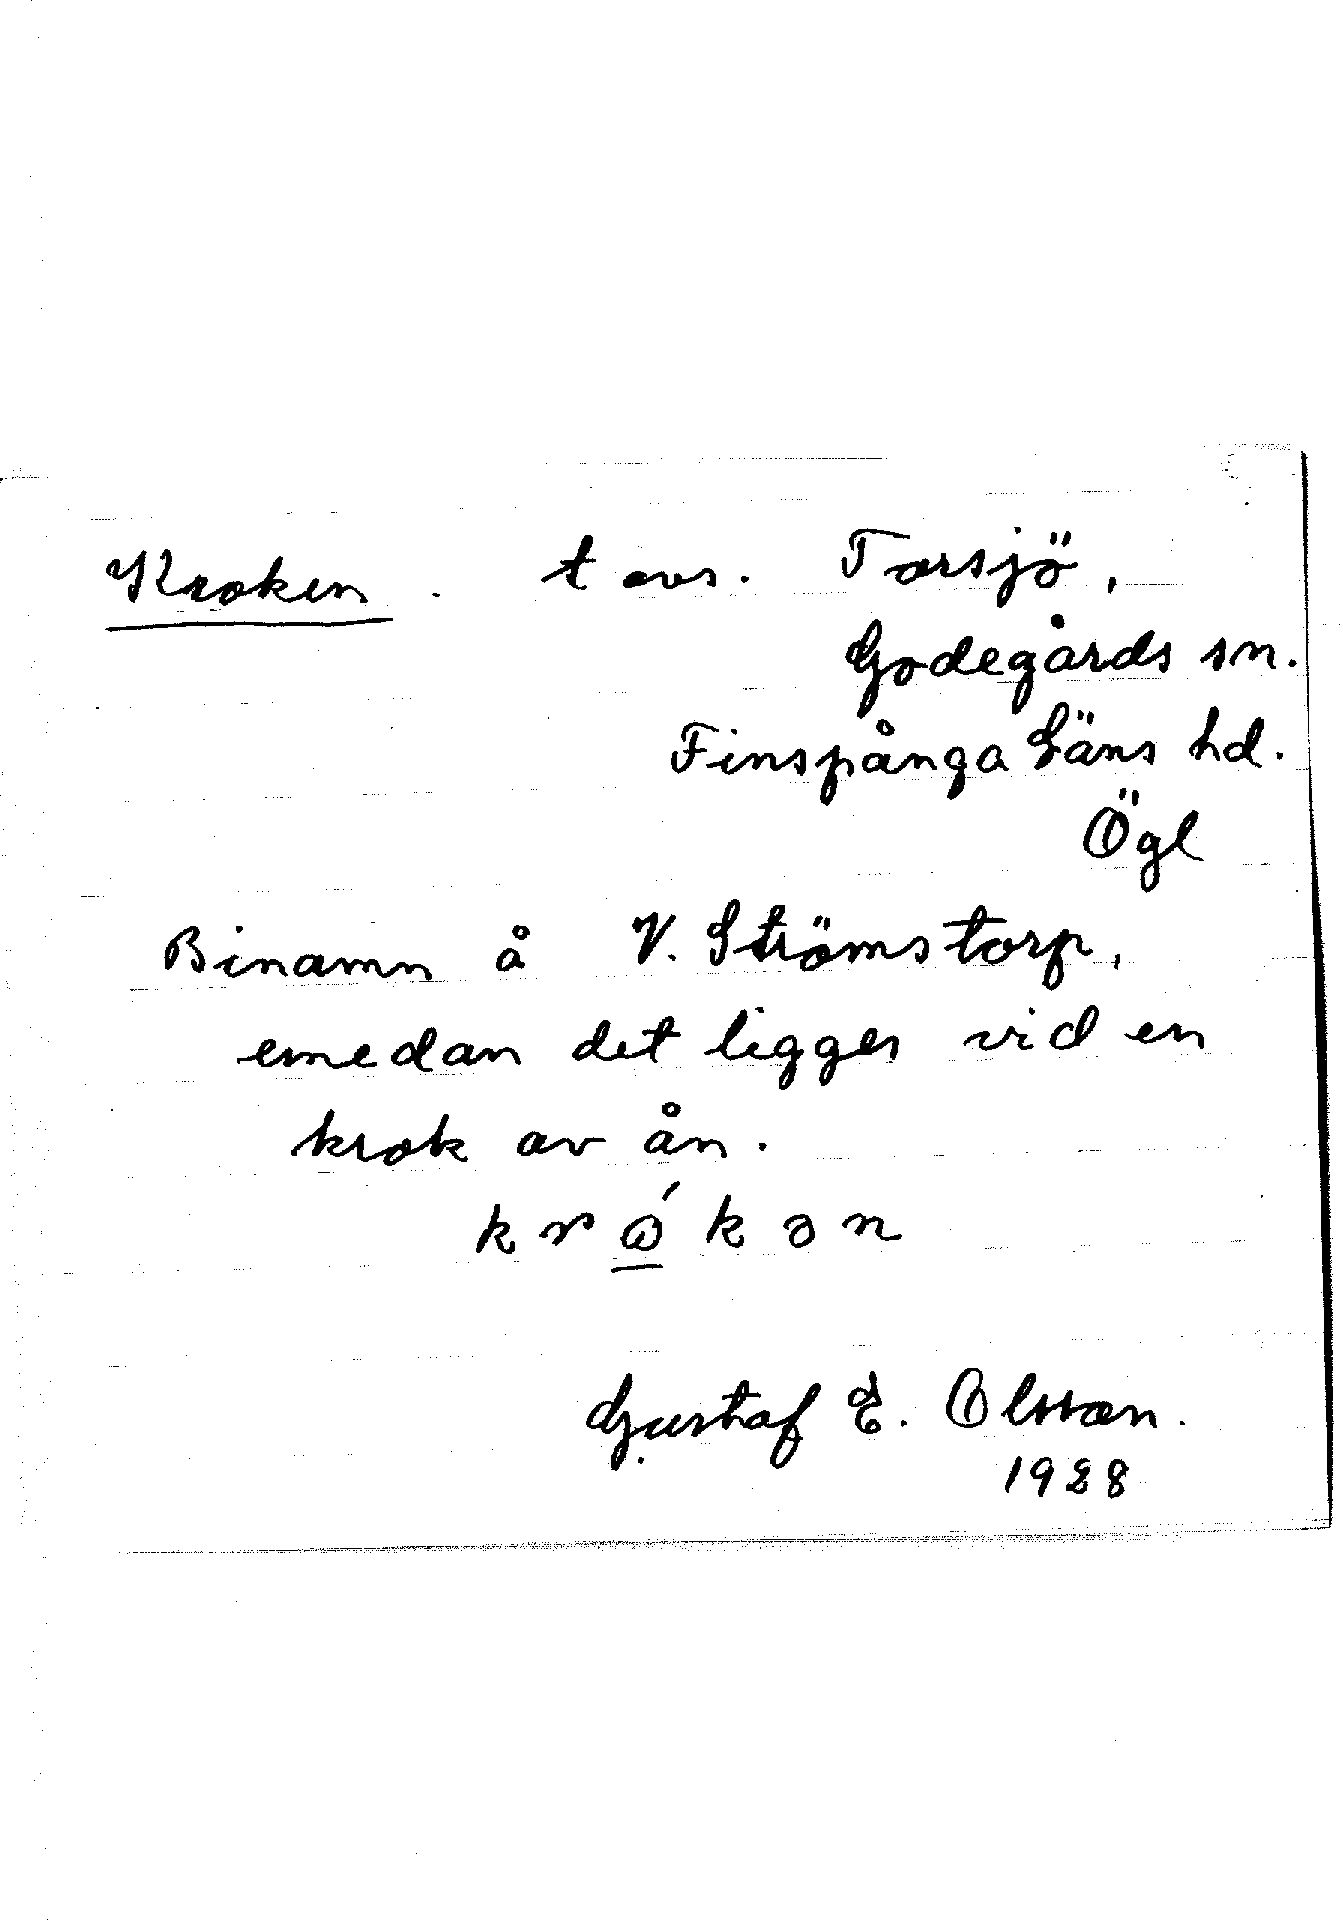 Kroken. t avs. Torsjö,
Godegårds sn.
Finspånga Läns hd.
Ögl
Binamn å V. Strömstorp,
emedan det ligger vid en
krok av ån.
Gustaf E. Olsson.
1928